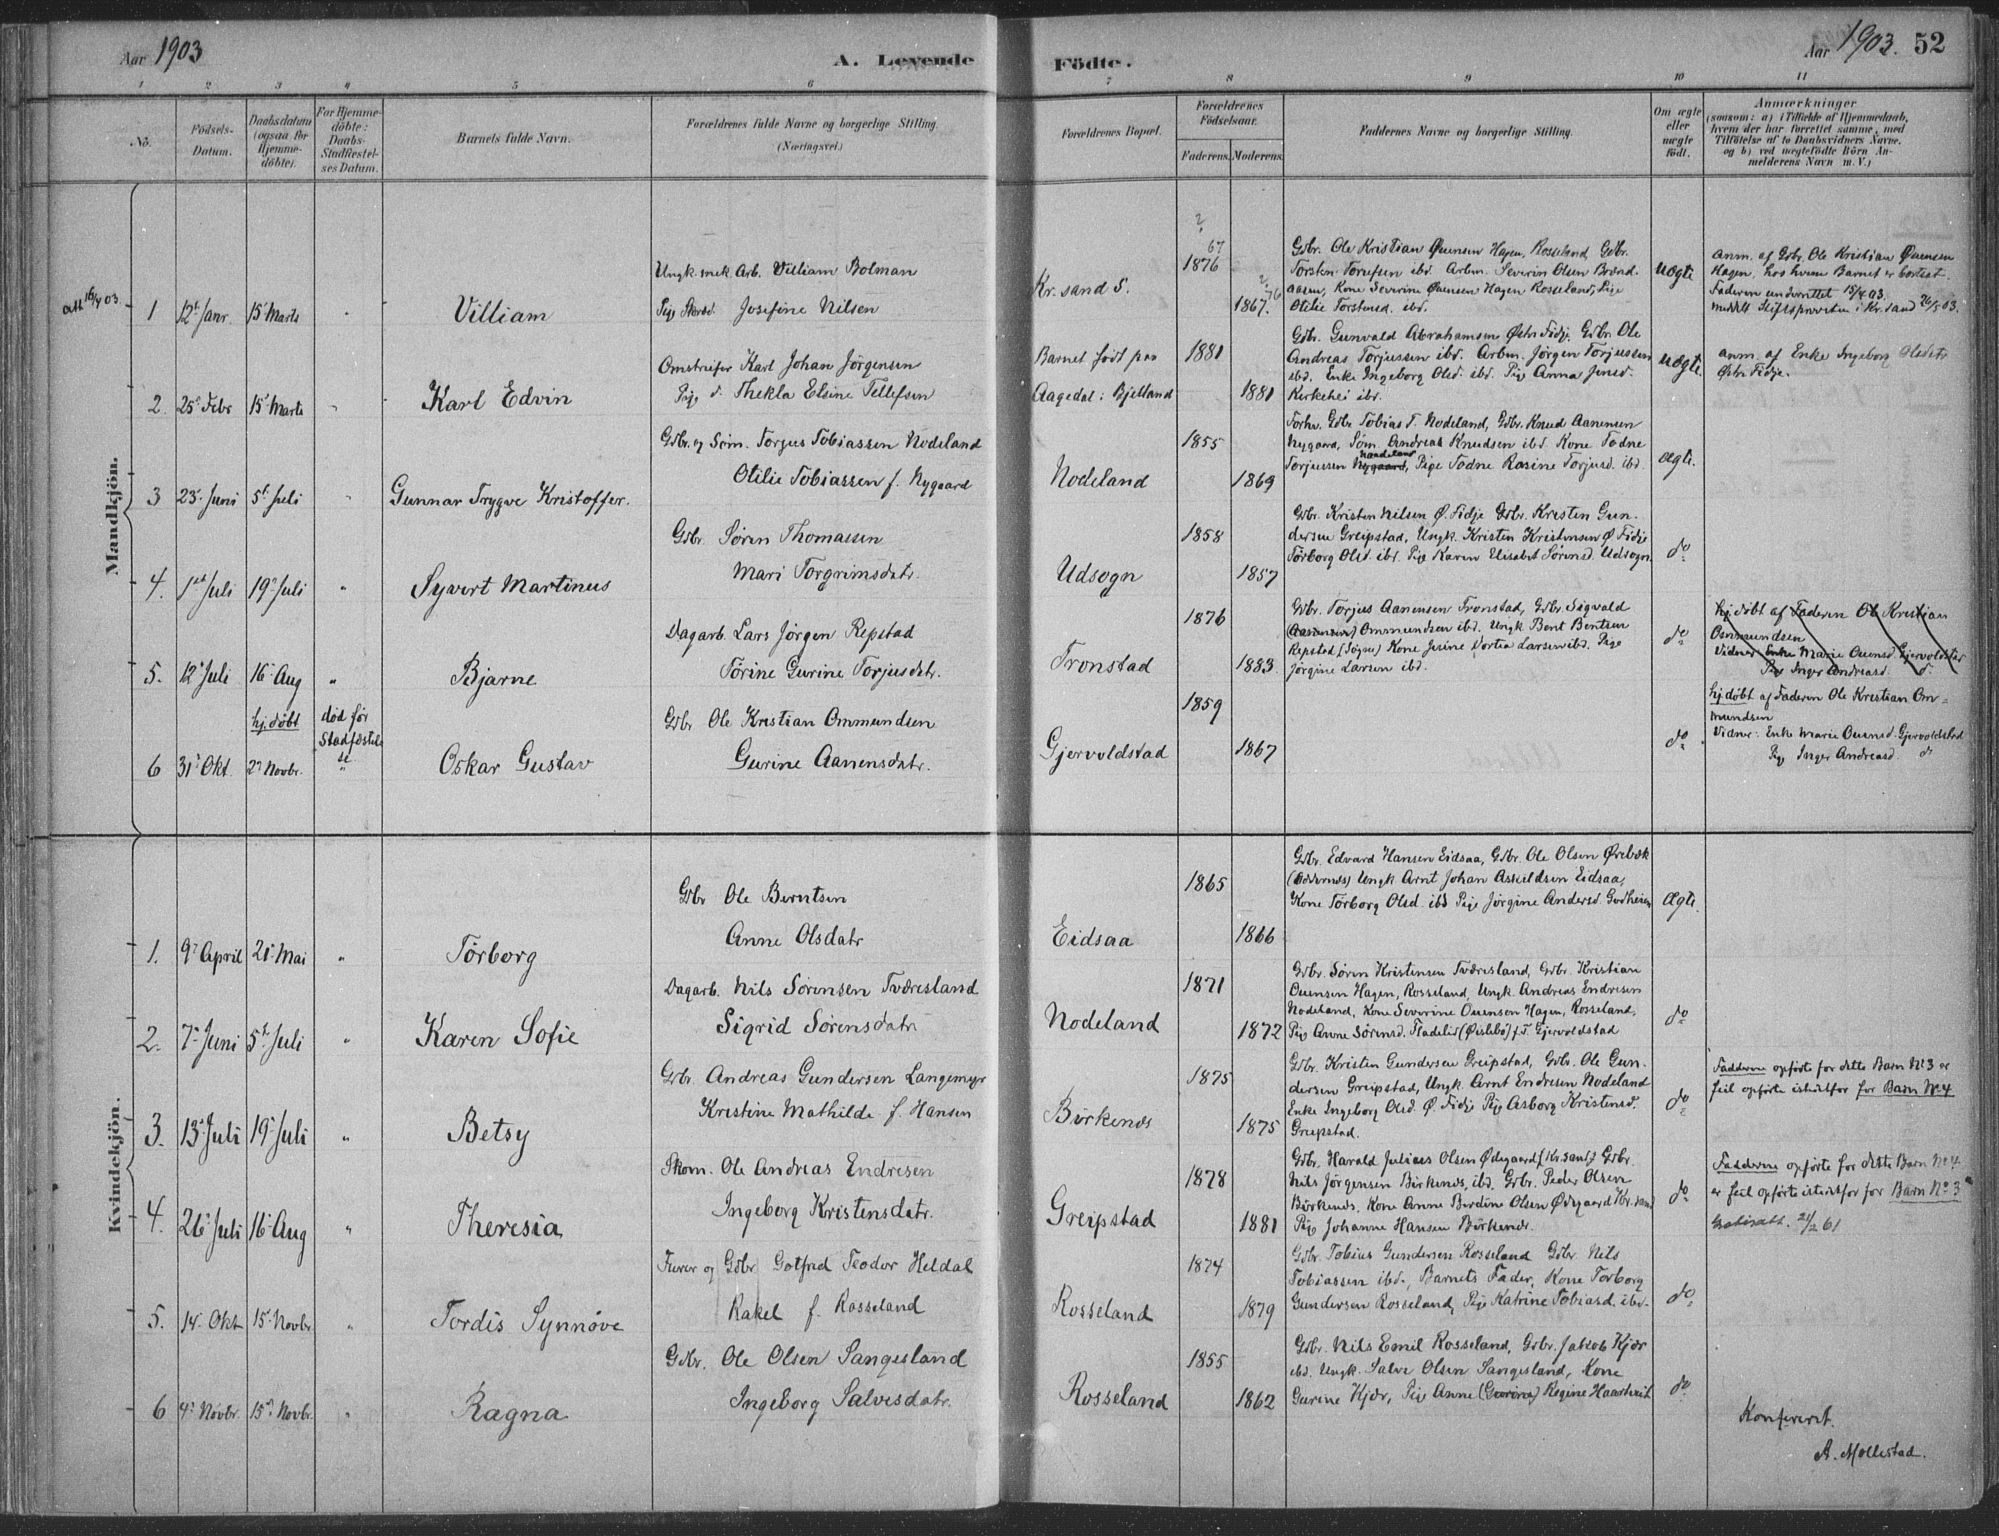 Aar 1903
A. Levende
Födte.
Aar 1903. 52
1 2 3 4 5 6 7 8 9 10 11
No.
Födsels-
Datum.
Daabsdatum
(ogsaa for
Hjemme-
döbte).
For Hjemme-
döbte:
Daabs-
Stadfæstel-
ses Datum.
Barnets fulde Navn.
Forældrenes fulde Navne og borgerlige Stilling.
(Næringsvei.)
Forældrenes Bopæl.
Forældrenes
Födselsaar.
Faderens. Moderens.
Faddernes Navne og borgerlige Stilling.
Om ægte
eller
uægte
födt.
Anmærkninger
(saasom: a) i Tilfælde af Hjemmedaab,
hvem der har forrettet samme, med
Tilföielse af to Daabsvidners Navne,
og b) ved uægtefödte Börn An-
melderens Navn m. V.)
Mandkjön.
att 16/4 03.
1 12t Janr. 15 Marts " Villiam
Ungk. mek. Arb. Villiam Bolman
Pige Josefine Nilsen
Kr. sand S.
67
1876
76
1867.
Gdbr. Ole Kristian Ouensen Hagen, Rosseland, Gdbr.
Torsten Torufsen ibd. Arbm. Severin Olsen Brænd-
aasen, Kone Severine Ouensen Hagen Rosseland, Pige
Otilie Torstensd. ibd.
uægte
anm. af Gdbr. Ole Kristian Ouensen
Hagen, hos hvem Barnet er bortsat.
Faderen underrettet 15/4 03.
meddelt Stiftsprovsten i Kr. sand 26/5 03.
2. 25 Febr 15 Marts " Karl Edvin
Omstreifer Karl Johan Jørgensen
Pige d. Thekla Elsine Tellefsen
Barnet født paa
Aagedal i Bjelland
1881
1881
Gdbr. Gunvald Abrahamsen Østr. Fidje, Gdbr. Ole
Andreas Torjussen ibd. Arbm. Jörgen Torjussen
ibd. Enke Ingeborg Olsd. ibd. Pige Anna Jensd.
Kirkehei ibd.
uægte.
anm. af Enke Ingeborg Olsdatr
Østr. Fidje.
3 23 Juni 5t Juli " Gunnar Trygve Kristoffer.
Gdbr. og Søm. Torjus Tobiassen Nodeland
Otilie Tobiassen f. Nygaard
Nodeland
1855
1869
Forhv. Gdbr Tobias T. Nodeland, Gdbr. Knud Aanensen
Nygaard, Søm. Andreas Knudsen ibd. Kone Todne
Torjussen Nygaard, Pige Todne Rasine Torjusd. ibd.
Nodeland
ægte.
4. 1ste Juli 19 Juli " Syvert Martinus
Gdbr. Søren Thomassen
Mari Torgrimsdatr.
Udsogn
1858
1857
Gdbr. Kristen Nilsen Ø. Fidje Gdbr. Kristen Gun-
dersen Greipstad, Ungk. Kristen Kristensen Ø Fidje
Tørborg Olsd. ibd. Pige Karen Elisabet Sørensd. Udsogn.
do
5. 12 Juli 16 Aug " Bjarne
Dagarb. Lars Jørgen Repstad
Tørine Gurine Torjusdatr.
Tronstad
1876
1883
Gdbr. Torjus Aanensen Tronstad, Gdbr. Sigvald
(Aanensen) Ommundsen ibd. Ungk. Bent Bentsen
Repstad (Søgne) Kone Jesine Dortea Larsen ibd. Pige
Jörgine Larsen ibd.
do
hj. døbt af Faderen Ole Kristian
Ommundsen
Vidner Enke Marie Ouensd. Gjervoldstad
Pige Inger Andreasd. d.
6 31 Okt. hj. døbt 2 Novbr. død før Stadfæstelse " Oskar Gustav
Gdbr Ole Kristian Ommundsen
Gurine Aanensdatr.
Gjervoldstad
1859
1867
do
hj. døbt af Faderen Ole Kristian Om-
mundsen
Vidner: Enke Marie Ouensd. Gjervoldstad
Pige Inger Andreasd. d
Kvindekjön.
1. 9 April 21 Mai " Tørborg
Gdbr Ole Berntsen
Anne Olsdatr
Eidsaa
1865
1866
Gdbr. Edvard Hansen Eidsaa, Gdbr. Ole Olsen Ørebæk
(Oddernes) Ungk Arnt Johan Askildsen Eidsaa,
Kone Tørborg Olsd. ibd Pige Jørgine Andersd. Godheien
Ægte.
2. 7 Juni 5t Juli " Karen Sofie
Dagarb. Nils Sörensen Tveresland
Sigrid Sørensdatr
Nodeland
1871
1872
Gdbr. Søren Kristensen Tveresland, Gdbr. Kristian
Ouensen Hagen, Rosseland, Ungk. Andreas Endresen
Nodeland, Kone Severine Ouensen Hagen, Rosseland,
Pige Anne Sørensd. Fladelid (Øislebø) f. T. Gjervoldstad
do
3. 13 Juli 19 Juli " Betsy
Gdbr. Andreas Gundersen Langemyr
Kristine Mathilde f. Hansen
Birkenes
1875
1875
Gdbr. Kristen Gundersen Greipstad, Gdbr. Ole Gun-
dersen Greipstad, Ungk. Arnt Endresen Nodeland
Enke Ingeborg Olsd. Ø. Fidje Pige Asborg Kristensd.
Greipstad.
do
Fadderne opførte for dette Barn No 3 er
feil opførte istedetfor for Barn No 4
4. 26 Juli 16 Aug " Theresia
Skom. Ole Andreas Endresen
Ingeborg Kristensdatr.
Greipstad
1878
1881
Gdbr. Harald Julius Olsen Ødegaard (Kr.sand) Gdbr.
Nils Jørgensen Birkenes, ibd. Gdbr. Peder Olsen
Birkenes, Kone Anne Berdine Olsen Ødegaard Kr. sand
Pige Johanne Hansen Birkenes.
do
Fadderne opførte for dette Barn No 4
er feil opførte istedetfor for Barn No 3
Gratisatt. 21/2 61
5. 14 Okt 15 Novbr " Tordis Synnøve
Furer og Gdbr Gotfred Teodor Heldal
Rakel f. Rosseland
Rosseland
1874
1879
Gdbr. Tobias Gundersen Rosseland Gdbr. Nils
Tobiassen ibd., Barnets Fader, Kone Torborg
Gundersen Rosseland, Pige Katrine Tobiasd. ibd.
do
6 4 Novbr. 15 Novbr. " Ragna
Gdbr. Ole Olsen Sangesland
Ingeborg Salvesdatr.
Rosseland
1855
1862
Gdbr. Nils Emil Rosseland, Gdbr. Jakob Kjær
ibd. Ungk. Salve Olsen Sangesland, Kone
Gurine Kjær, Pige Anne (Gurine) Regine Haartveit
do
Konfereret.
A. Mollestad.